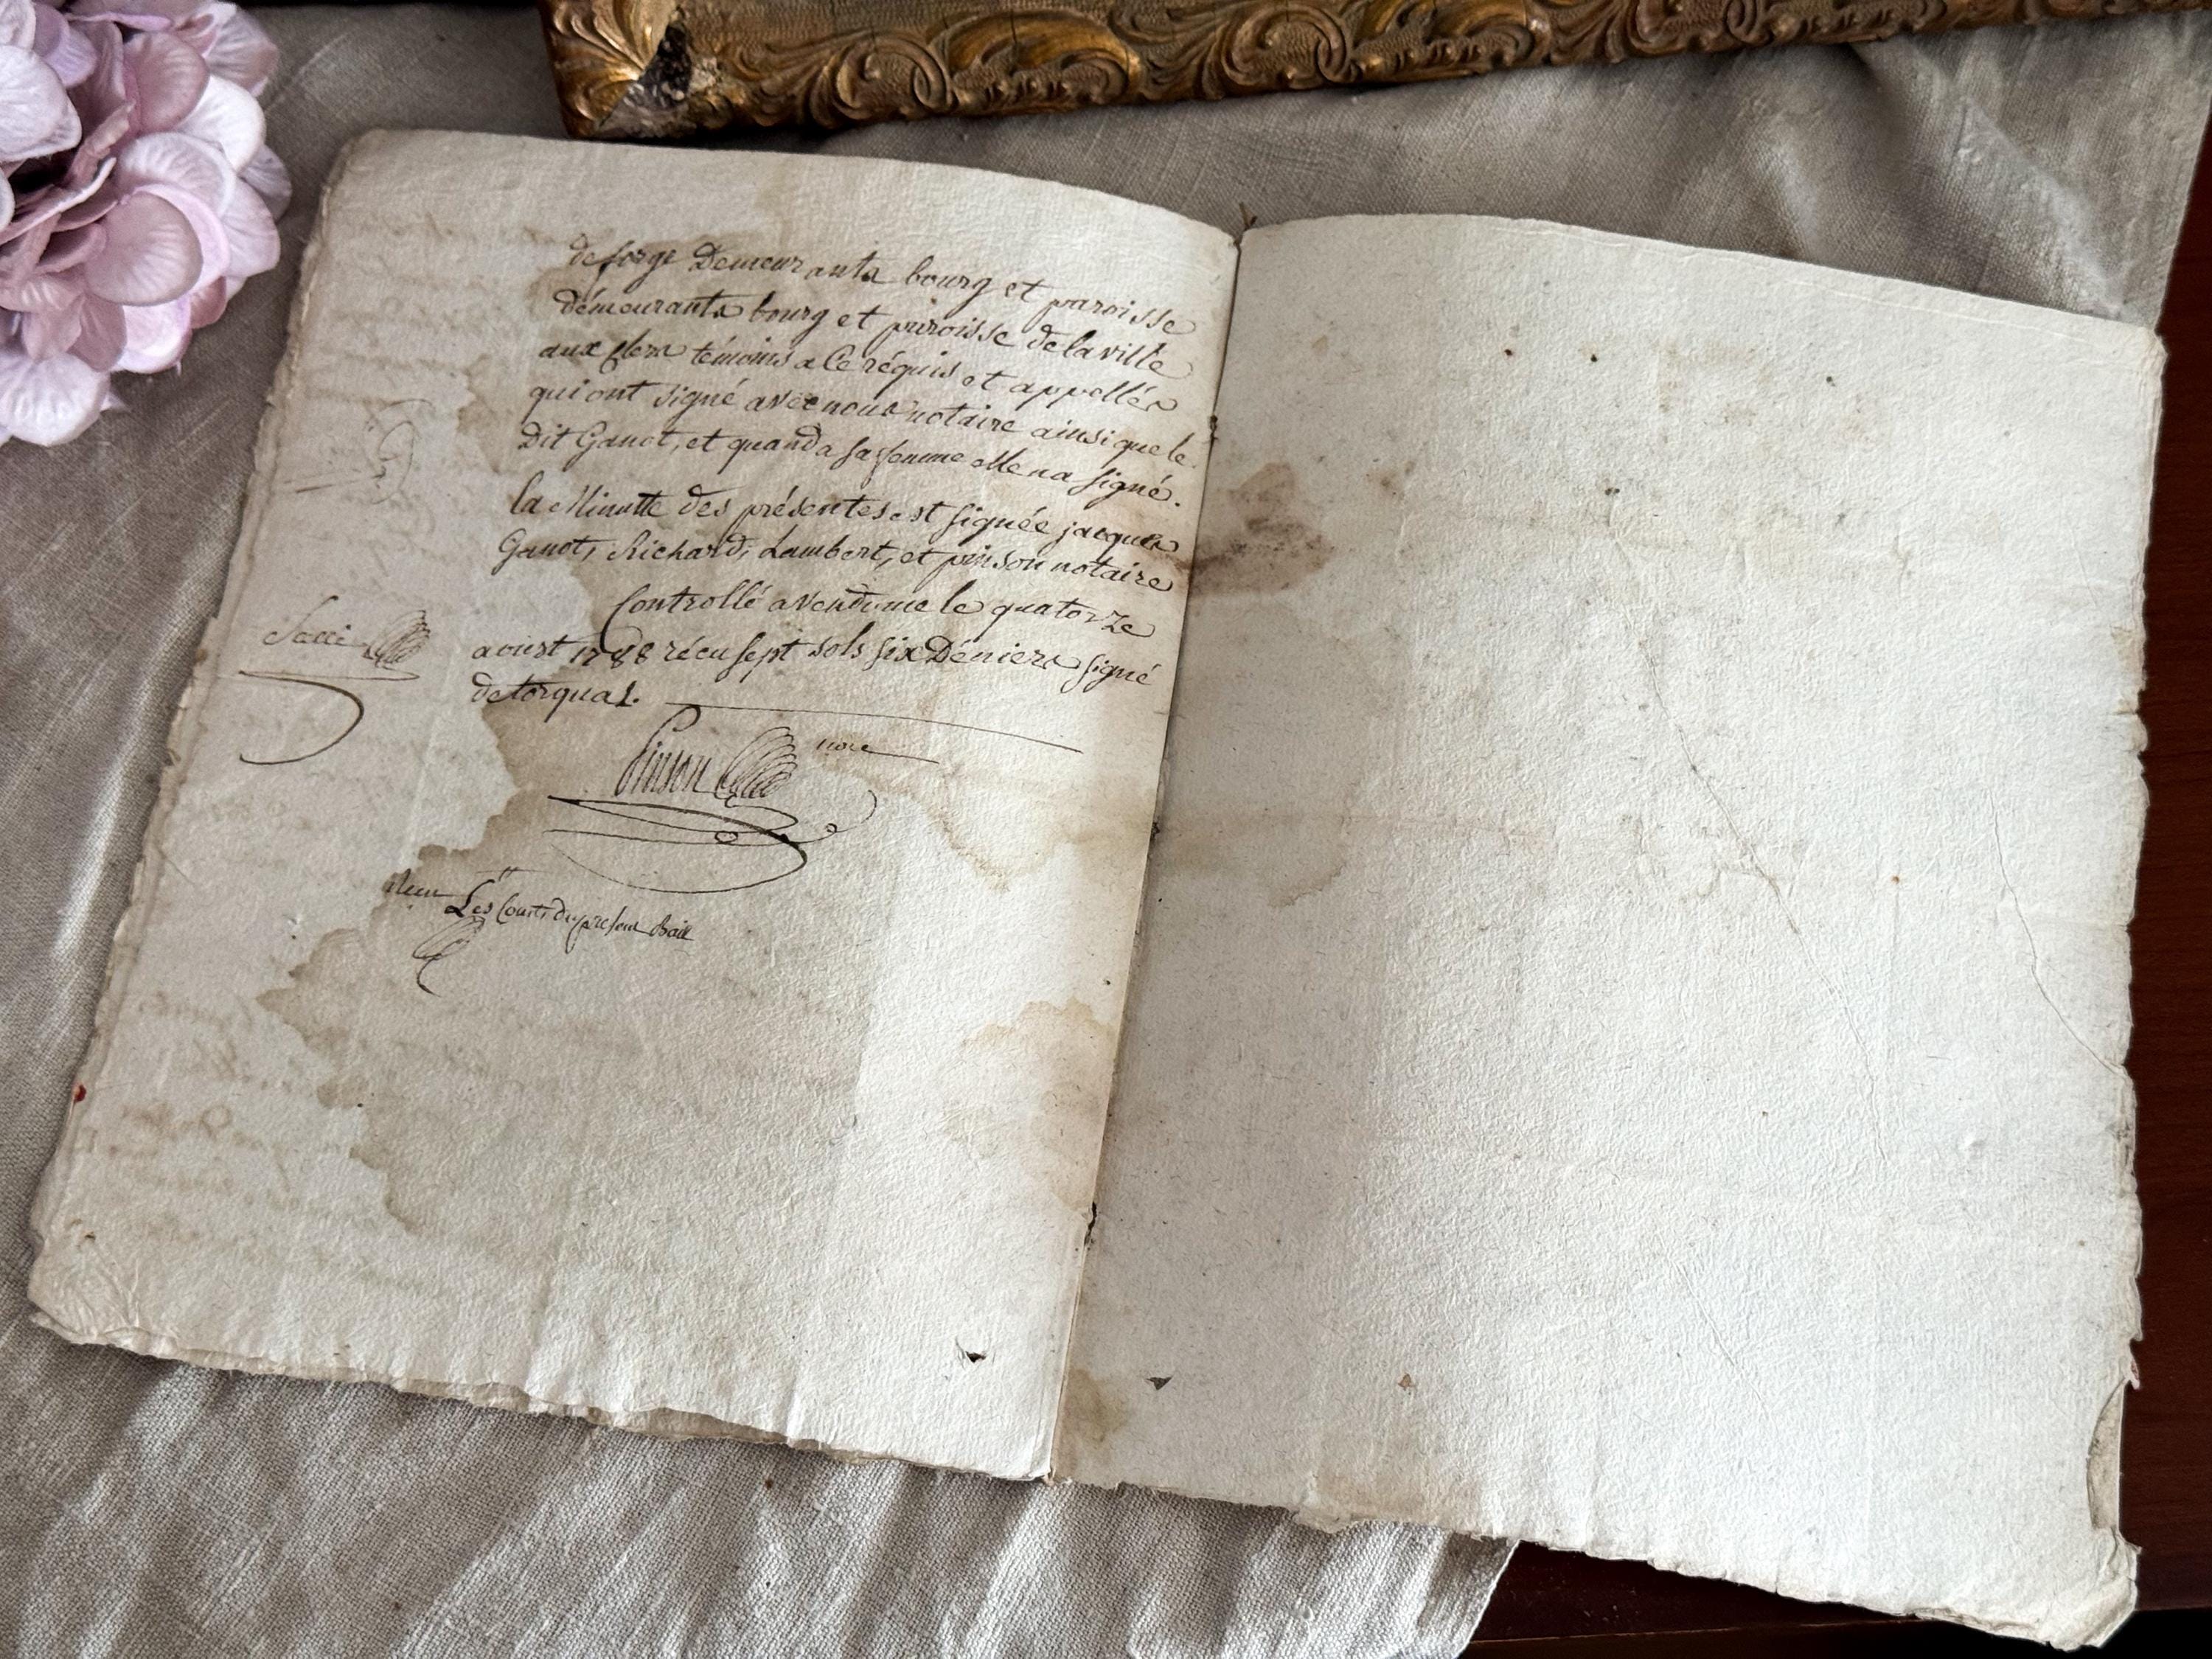 de forge Demeurants bourg et paroisse
démeurants bourg et paroisse de la ville
aux clers témoins a Ce réquis et appellés
qui ont signé avec nous notaire ainsi que le
Dit Ganot, et quand a sa femme elle na signé.
la Minutte des présentes est signée jacques
Ganot, Richard, Lambert, et pinson notaire
Controllé a Vendome le quatorze
aoust 1788 récu sept sols six Déniers signé
detorquat.
Pinson nore
Les Couts du present Bail